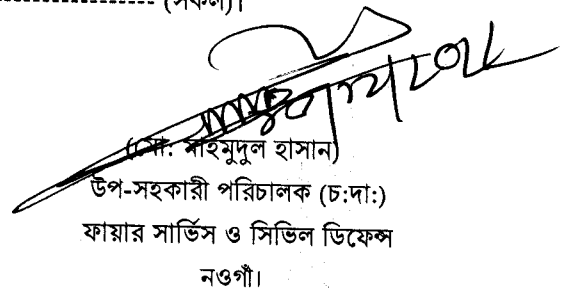 (সকল)।
(মো: মাহমুদুল হাসান)
উপ-সহকারী পরিচালক (চ:দা:)
ফায়ার সার্ভিস ও সিভিল ডিফেন্স
নওগাঁ।